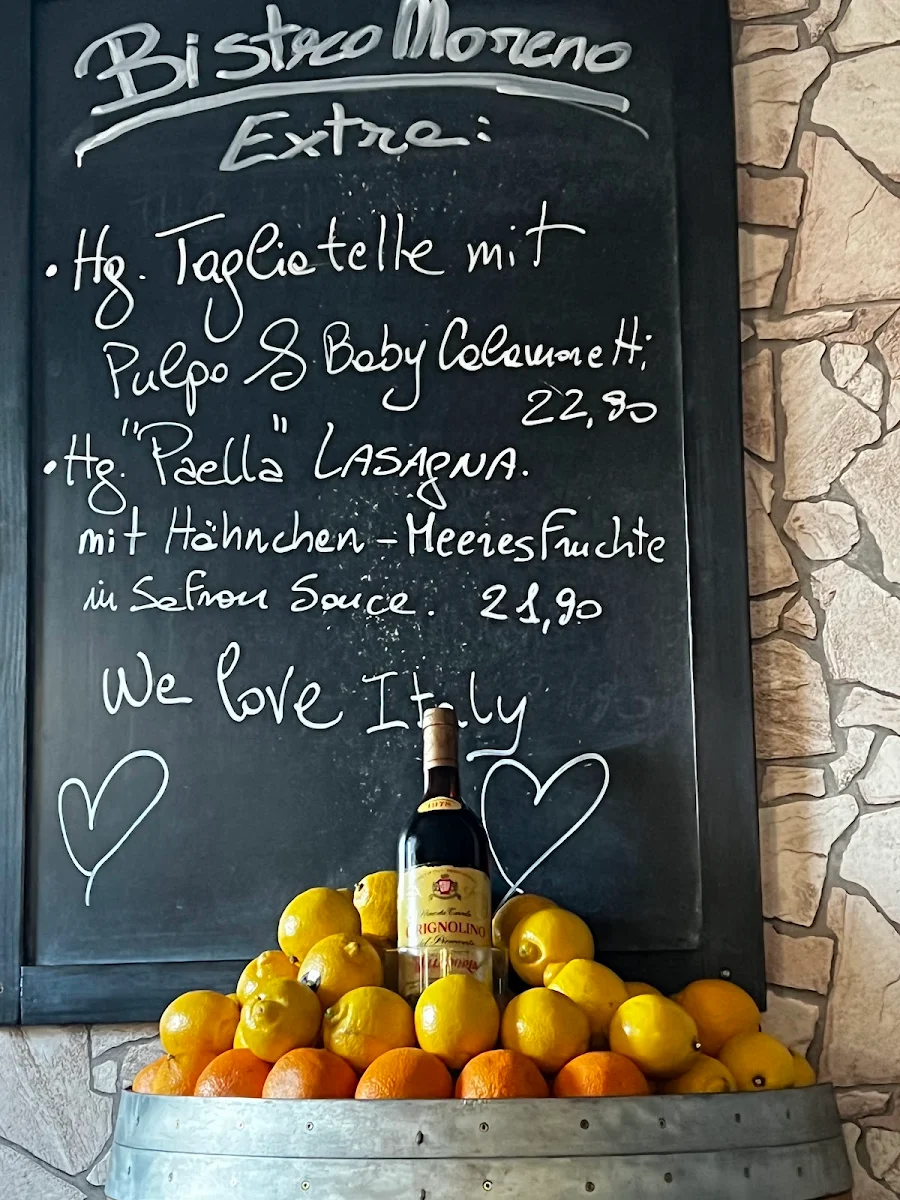 Bistro Moreno
Extra:
• Hg. Tagliatelle mit
Pulpo & Baby Calamaretti
22,90
• Hg. "Paella" LASAGNA.
mit Hähnchen - Meeresfruchte
in Safran Sauce. 21,90
We love Italy
1978
GRIGNOLINO